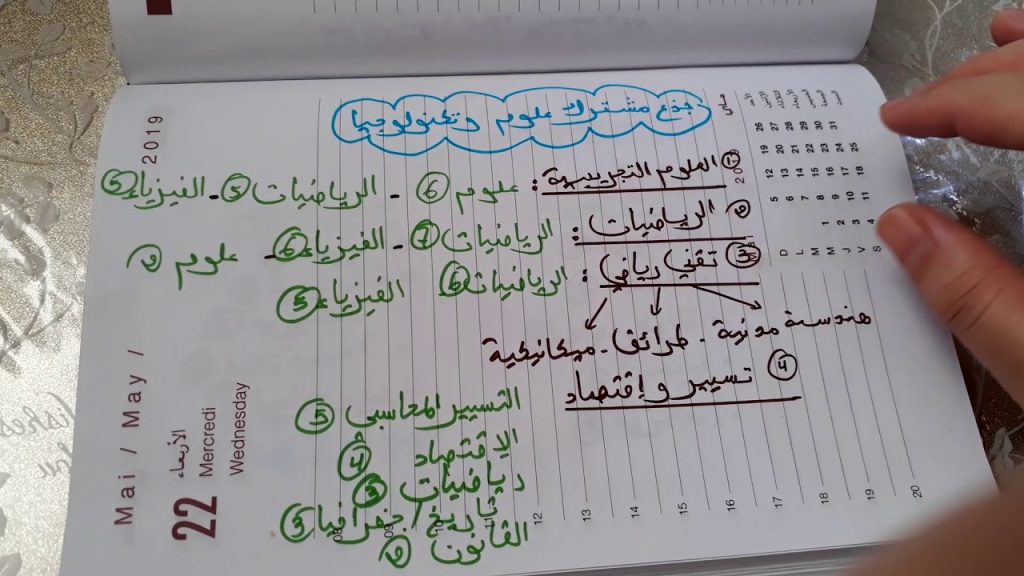 جذع مشترك علوم وتكنولوجيا
① العلوم التجريبية: علوم ⑥ - الرياضيات ⑤ - الفيزياء ⑤
② الرياضيات: الرياضيات ⑦ - الفيزياء ⑥ - علوم ②
③ تقني رياضي: الرياضيات ⑥ الفيزياء ⑤
هندسة مدنية - طرائق - ميكانيكية
④ تسيير و إقتصاد
التسيير المحاسبي ⑤
الاقتصاد ④
رياضيات ③
تاريخ / جغرافيا ③
القانون ②
Mai / May /
2019
22
الأربعاء
Mercredi
Wednesday
D 5 12 19 26
L 6 13 20 27
M 7 14 21 28
M 1 8 15 22 29
J 2 9 16 23 30
V 3 10 17 24 31
S 4 11 18 25
12
13
14
15
16
17
18
19
20